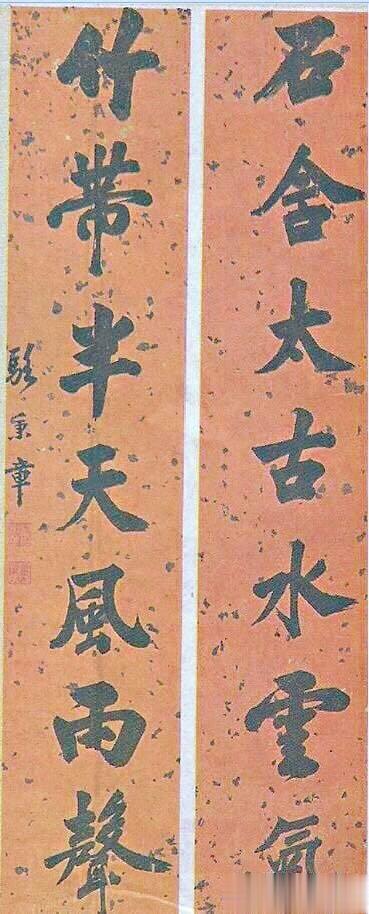 石含太古水雲氣
竹帶半天風雨聲
駱秉章